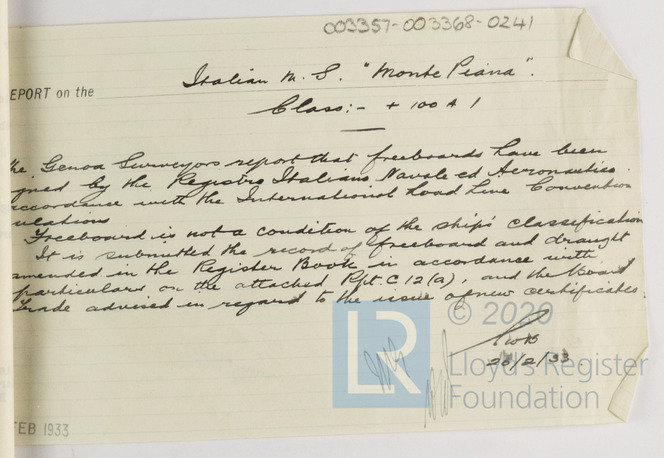 003357-003368-0241
EPORT on the
Italian M.S. "Monte Piana".
Class:- + 100 A 1
he Genoa Surveyors report that freeboards have been
gned by the Registro Italiano Navale ed Aeronautico
accordance with the International Load Line Convention
ulations
Freeboard is not a condition of the ship's classification
It is submitted the record of freeboard and draught
amended in the Register Book in accordance with
particulars on the attached Rpt. C 12(a), and the Board
Trade advised in regard to the issue of new certificates.
© 2020
20/2/33
LR
Lloyd's Register
Foundation
FEB 1933